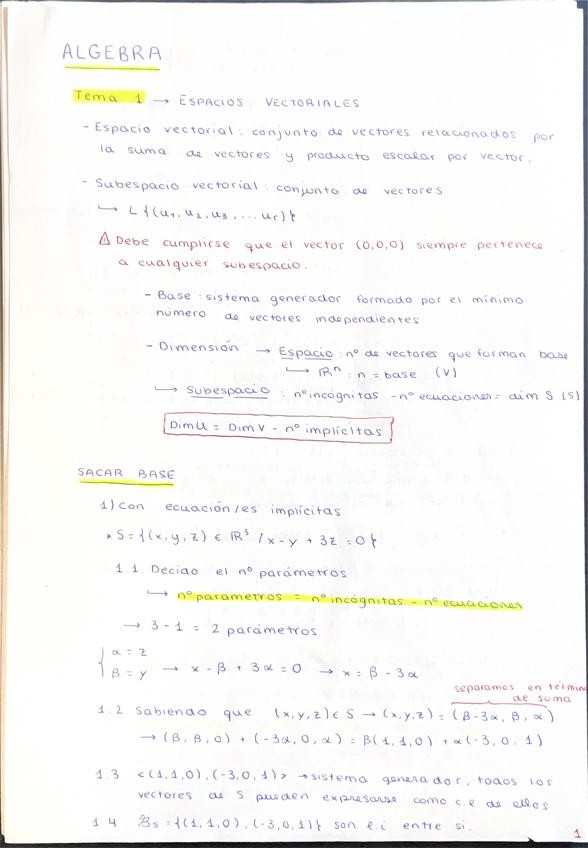 ALGEBRA
Tema 1 → ESPACIOS VECTORIALES
- Espacio vectorial: conjunto de vectores relacionados por
la suma de vectores y producto escalar por vector.
- Subespacio vectorial: conjunto de vectores
↳ L{(u₁, u₂, u₃, ... ur)}
⚠ Debe cumplirse que el vector (0,0,0) siempre pertenece
a cualquier subespacio.
- Base: sistema generador formado por el mínimo
número de vectores independientes
- Dimensión → Espacio: nº de vectores que forman base
↳ ℝⁿ: n = base (V)
↳ Subespacio: nº incógnitas - nº ecuaciones = dim S (S)
Dim U = Dim V - nº implícitas
SACAR BASE
1) Con ecuación/es implícitas
* S = {(x, y, z) ∈ ℝ³ / x - y + 3z = 0}
1.1. Decido el nº parámetros
↳ nº parametros = nº incógnitas - nº ecuaciones
→ 3 - 1 = 2 parámetros
{ α = z
β = y → x - β + 3α = 0 → x = β - 3α
separamos en término
de suma
1.2 Sabiendo que (x, y, z) ∈ S → (x, y, z) = (β - 3α, β, α)
→ (β, β, 0) + (-3α, 0, α) = β(1, 1, 0) + α(-3, 0, 1)
1.3 <(1,1,0), (-3,0,1)> → sistema generador, todos los
vectores de S pueden expresarse como c.l de ellos
1.4 Bs = {(1,1,0), (-3,0,1)} son l.i entre si.
1